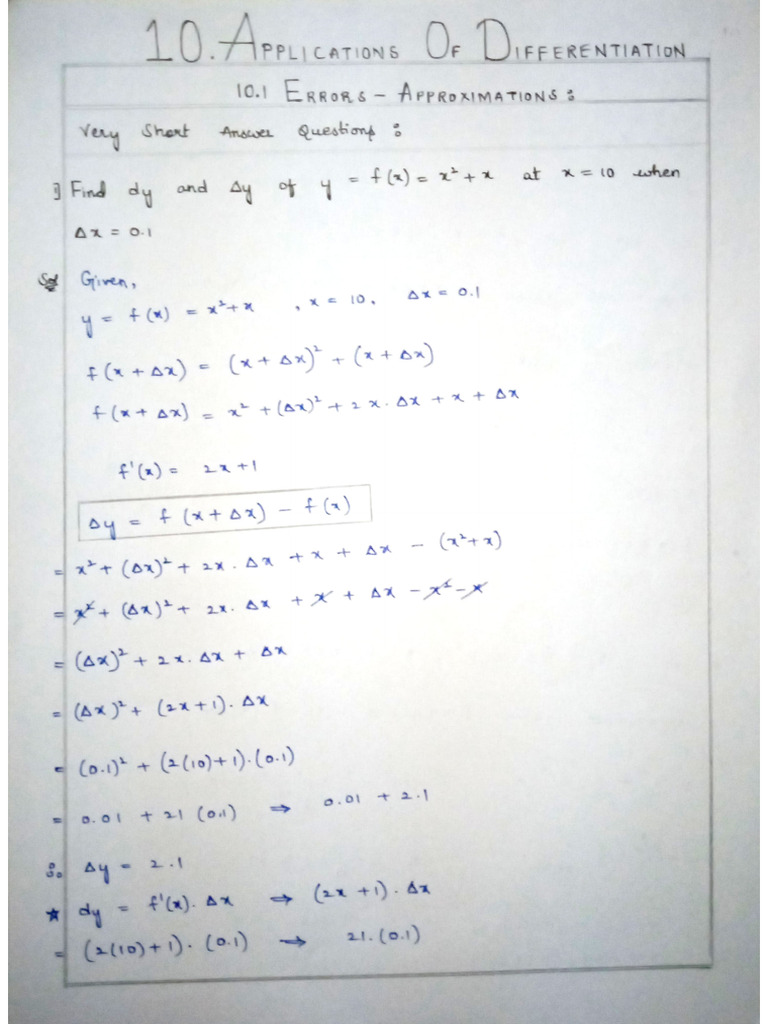 10. APPLICATIONS OF DIFFERENTIATION
10.1 ERRORS - APPROXIMATIONS :
Very Short Answer Questions :
1) Find dy and Δy of y = f(x) = x² + x at x = 10 when
Δx = 0.1
Sol Given,
y = f(x) = x² + x , x = 10, Δx = 0.1
f(x + Δx) = (x + Δx)² + (x + Δx)
f(x + Δx) = x² + (Δx)² + 2x. Δx + x + Δx
f'(x) = 2x + 1
Δy = f (x + Δx) - f(x)
= x² + (Δx)² + 2x. Δx + x + Δx - (x² + x)
= x² + (Δx)² + 2x. Δx + x + Δx - x² - x
= (Δx)² + 2x. Δx + Δx
= (Δx)² + (2x + 1). Δx
= (0.1)² + (2(10) + 1). (0.1)
= 0.01 + 21 (0.1) ⇒ 0.01 + 2.1
∴ Δy = 2.1
★ dy = f'(x). Δx ⇒ (2x + 1). Δx
= (2(10) + 1). (0.1) ⇒ 21. (0.1)